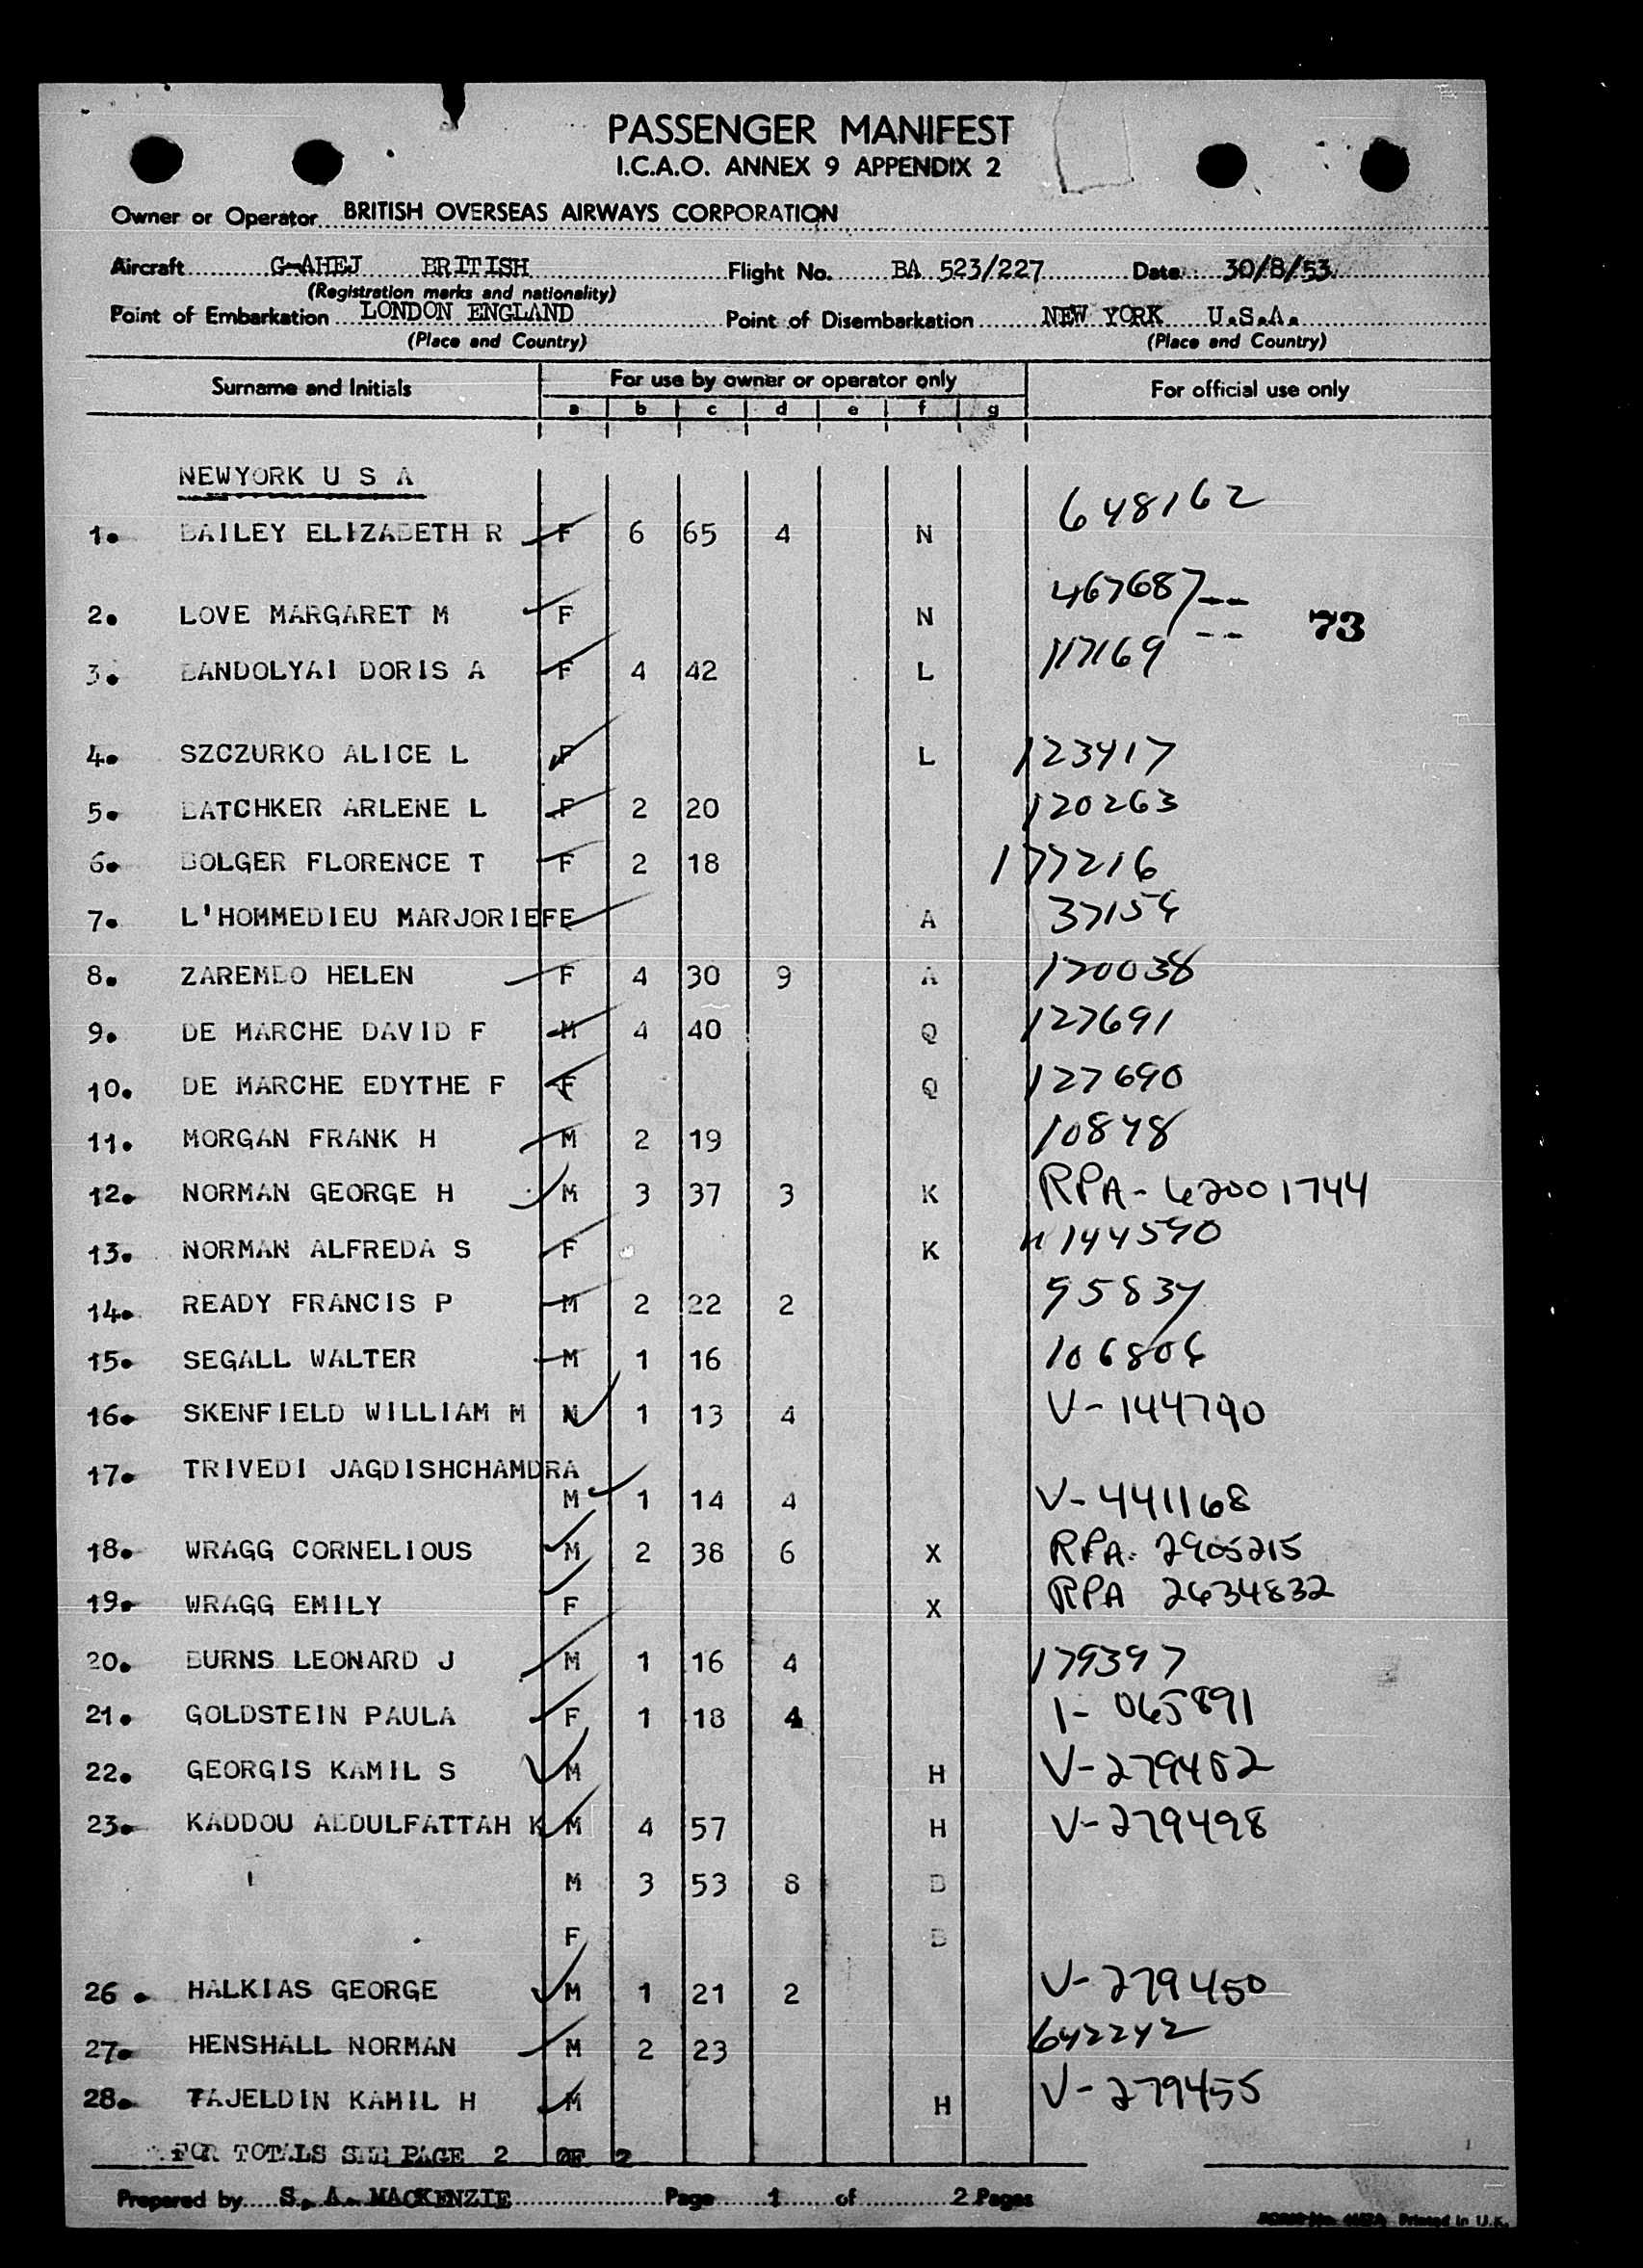 PASSENGER MANIFEST
I.C.A.O. ANNEX 9 APPENDIX 2
Owner or Operator BRITISH OVERSEAS AIRWAYS CORPORATION
Aircraft G-AHEJ BRITISH Flight No. BA 523/227 Date 30/8/53
(Registration marks and nationality)
Point of Embarkation LONDON ENGLAND Point of Disembarkation NEW YORK U.S.A.
(Place and Country) (Place and Country)
Surname and Initials For use by owner or operator only For official use only
a b c d e f g
NEWYORK U S A
1. BAILEY ELIZABETH R F 6 65 4 N 648162
2. LOVE MARGARET M F N 467687 -- 73
3. BANDOLYAI DORIS A F 4 42 L 117169 --
4. SZCZURKO ALICE L F L 123417
5. BATCHKER ARLENE L F 2 20 120263
6. BOLGER FLORENCE T F 2 18 177216
7. L'HOMMEDIEU MARJORIEFE A 37154
8. ZAREMBO HELEN F 4 30 9 A 120038
9. DE MARCHE DAVID F M 4 40 Q 127691
10. DE MARCHE EDYTHE F F Q 127690
11. MORGAN FRANK H M 2 19 10848
12. NORMAN GEORGE H M 3 37 3 K RPA-62001744
13. NORMAN ALFREDA S F K 144590
14. READY FRANCIS P M 2 22 2 95834
15. SEGALL WALTER M 1 16 106804
16. SKENFIELD WILLIAM M M 1 13 4 V-144790
17. TRIVEDI JAGDISHCHAMDRA
M 1 14 4 V-441168
18. WRAGG CORNELIOUS M 2 38 6 X RPA. 2905215
19. WRAGG EMILY F X RPA 2634832
20. BURNS LEONARD J M 1 16 4 179397
21. GOLDSTEIN PAULA F 1 18 4 1-065891
22. GEORGIS KAMIL S M H V-279452
23. KADDOU ABDULFATTAH K M 4 57 H V-279498
M 3 53 8 B
F B
26. HALKIAS GEORGE M 1 21 2 V-279450
27. HENSHALL NORMAN M 2 23 642242
28. TAJELDIN KAMIL H M H V-279455
FOR TOTALS SEE PAGE 2 OF 2
Prepared by S. A. MACKENZIE Page 1 of 2 Pages
Printed in U.K.